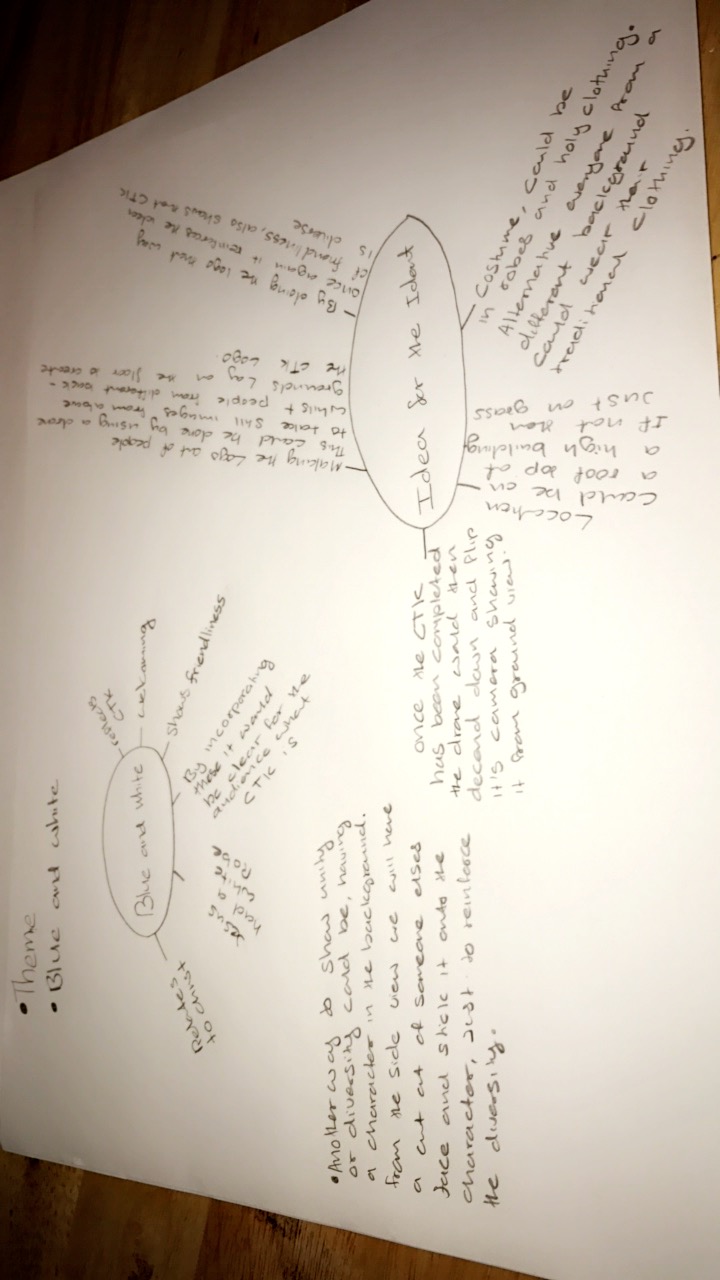 • Theme
• Blue and white
Blue and white
reflects
CTK
welcoming
Shows friendliness
By incorporating
these it would
be clear for the
audience what
CTK is
Jesus
had a
white
robe
Relates
to christ
Idea for the Ident
Making the Logo out of people
This could be done by using a drone
to take still images from above
whilst people from different back-
grounds Lay on the floor to create
the CTK Logo.
By doing the logo that way
once again it reinforces the idea
of friendliness, also shows that CTK
is diverse
Costume, could be
in robes and holy clothing.
Alternative everyone from a
different background
could wear their
traditional clothing.
Location
could be on
a roof top of
a high building
If not then
Just on grass
once the CTK
has been completed
the drone would then
decend down and flip
it's camera showing
it from ground view.
• Another way to show unity
or diversity could be, having
a character in the background.
from the side view we will have
a cut out of someone elses
face and stick it onto the
character, Just to reinforce
the diversity.